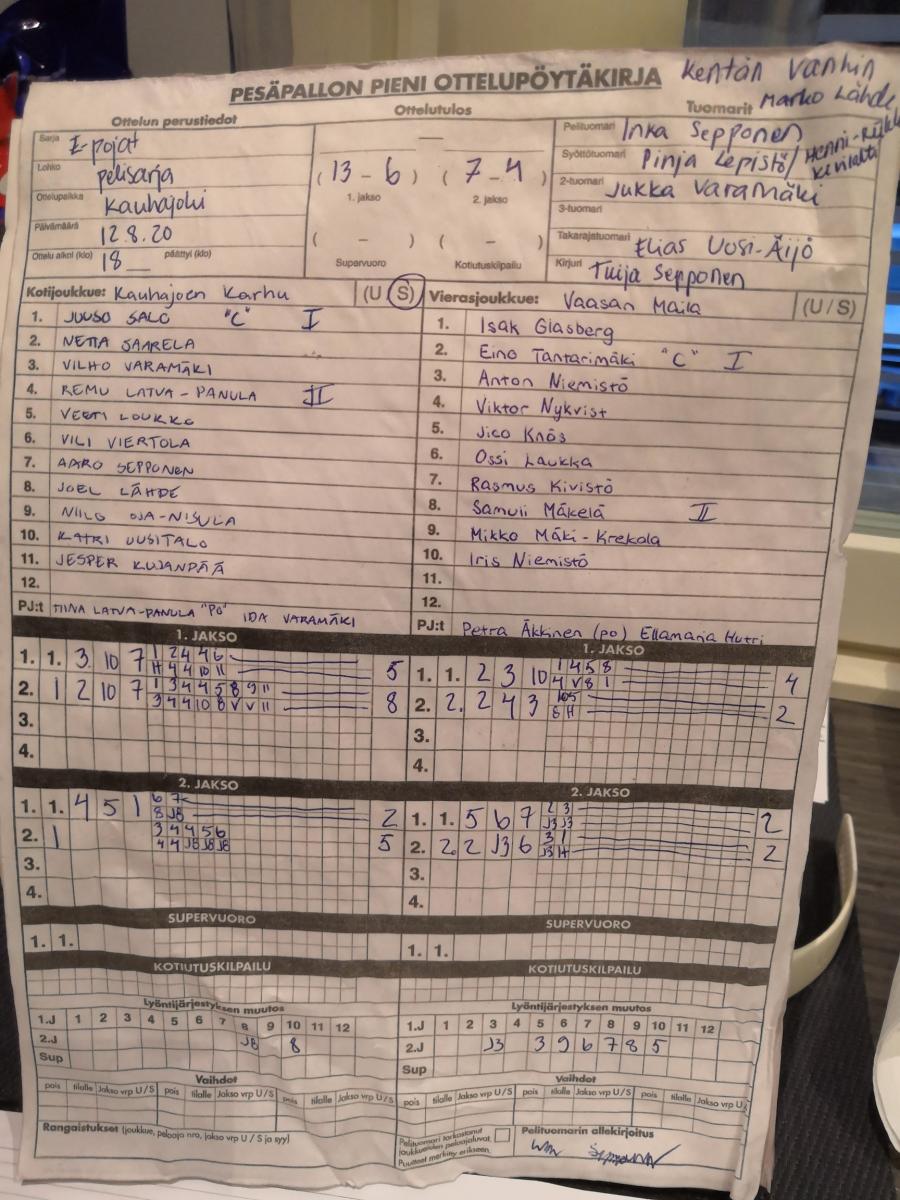 PESÄPALLON PIENI OTTELUPÖYTÄKIRJA
Kentän vanhin
Marko Lähde
Ottelun perustiedot
Ottelutulos
Tuomarit
Sarja E-pojat
Lohko pelisarja
Ottelupaikka Kauhajoki
Päivämäärä 12.8.20
Ottelu alkoi (klo) 18 päättyi (klo)
—
( 13 - 6 ) ( 7 - 4 )
1. jakso 2. jakso
( - ) ( - )
Supervuoro Kotiutuskilpailu
Pelituomari Inka Sepponen
Syöttötuomari Pinja Lepistö/ Henni-
2-tuomari Jukka Varamäki
3-tuomari
Takarajatuomari Elias Uusi-Äijö
Kirjuri Tuija Sepponen
Kotijoukkue: Kauhajoen Karhu (U S)
1. JUUSO SALO "C" I
2. NETTA SAARELA
3. VILHO VARAMÄKI
4. REMU LATVA-PANULA II
5. VERTI LOUKKO
6. VILI VIERTOLA
7. AARO SEPPONEN
8. JOEL LÄHDE
9. NIILO OJA-NISULA
10. KATRI UUSITALO
11. JESPER KUJANPÄÄ
12.
PJ:t TIINA LATVA-PANULA "PO" IDA VARAMÄKI
Vierasjoukkue: Vaasan Maila (U / S)
1. Isak Glasberg
2. Eino Tantarimäki "C" I
3. Anton Niemistö
4. Viktor Nykvist
5. Jico Knös
6. Ossi Laukka
7. Rasmus Kivistö
8. Samuli Mäkelä II
9. Mikko Mäki-Krekola
10. Iris Niemistö
11.
12.
PJ:t Petra Äkkinen (po) Ellamaria Hutri
1. JAKSO
1. 1. 3 10 7 1 2 4 4 6 5
H 4 4 10 11
2. 1 2 10 7 1 3 4 4 5 8 9 11 8
3 4 4 10 8 V V 11
3.
4.
1. JAKSO
1. 1. 2 3 10 1 4 5 8 4
4 V 8 1
2. 2. 2 4 3 10 5 2
8 H
3.
4.
2. JAKSO
1. 1. 4 5 1 6 7 2
8 J8
2. 1 3 4 4 5 6 5
4 4 J8 J8 J8
3.
4.
2. JAKSO
1. 1. 5 6 7 2 3 2
J3 J3
2. 2. 2 J3 6 3 1 2
J3 H
3.
4.
SUPERVUORO
1. 1.
SUPERVUORO
1. 1.
KOTIUTUSKILPAILU
KOTIUTUSKILPAILU
Lyöntijärjestyksen muutos
1.J 1 2 3 4 5 6 7 8 9 10 11 12
2.J J8 8
Sup
Lyöntijärjestyksen muutos
1.J 1 2 3 4 5 6 7 8 9 10 11 12
2.J J3 3 9 6 7 8 5
Sup
Vaihdot
pois tilalle Jakso vrp U/S pois tilalle Jakso vrp U/S pois tilalle Jakso vrp U/S
Vaihdot
pois tilalle Jakso vrp U/S pois tilalle Jakso vrp U/S pois tilalle Jakso vrp U/S
Rangaistukset (joukkue, pelaaja nro, jakso vrp U / S ja syy)
Pelituomari tarkastanut
joukkueiden pelaajaluvat.
Puutteet merkitty erikseen.
Pelituomarin allekirjoitus